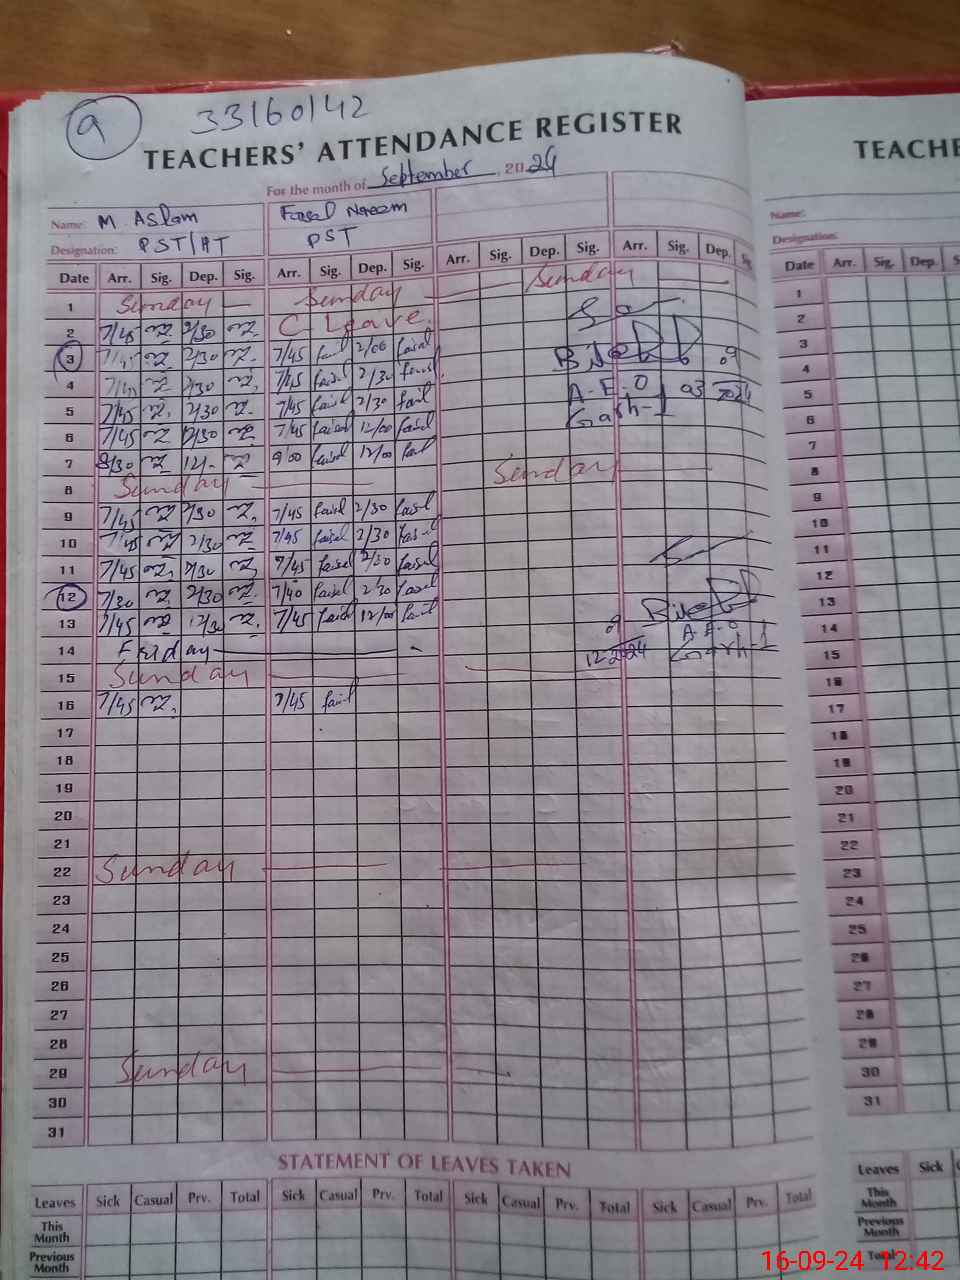 9 33160142
TEACHERS' ATTENDANCE REGISTER
TEACHE
For the month of September, 2024
Name: M Aslam Faisal Naeem
Name:
Designation: PST/HT PST
Designation:
Date Arr. Sig. Dep. Sig. Arr. Sig. Dep. Sig. Arr. Sig. Dep. Sig. Arr. Sig. Dep. Sig.
Date Arr. Sig. Dep. S
1 Sunday Sunday Sunday
2 7/45 2/30 C-Leave
3 7/45 2/30 7/45 faisal 2/00 faisal
Bilal
4 7/45 2/30 7/45 faisal 2/30 faisal
A-E-O 03 9 2024
5 7/45 2/30 7/45 faisal 2/30 faisal
Garh-1
6 7/45 2/30 7/45 faisal 12/00 faisal
7 8/30 12/- 9/00 faisal 12/00 faisal
8 Sunday Sunday
9 7/45 2/30 7/45 faisal 2/30 faisal
10 7/45 2/30 7/45 faisal 2/30 faisal
11 7/45 2/30 7/45 faisal 2/30 faisal
12 7/30 2/30 7/40 faisal 2/30 faisal
13 7/45 12/30 7/45 faisal 12/00 faisal
A-E-O
14 Friday
12-9-2024 Garh-1
15 Sunday
16 7/45 7/45 faisal
17
18
19
20
21
22 Sunday
23
24
25
26
27
28
29 Sunday
30
31
1
2
3
4
5
6
7
8
9
10
11
12
13
14
15
16
17
18
19
20
21
22
23
24
25
26
27
28
29
30
31
STATEMENT OF LEAVES TAKEN
Leaves Sick Casual Prv. Total Sick Casual Prv. Total Sick Casual Prv. Total Sick Casual Prv. Total
This Month
Previous Month
Leaves Sick
This Month
Previous Month
Total
16-09-24 12:42